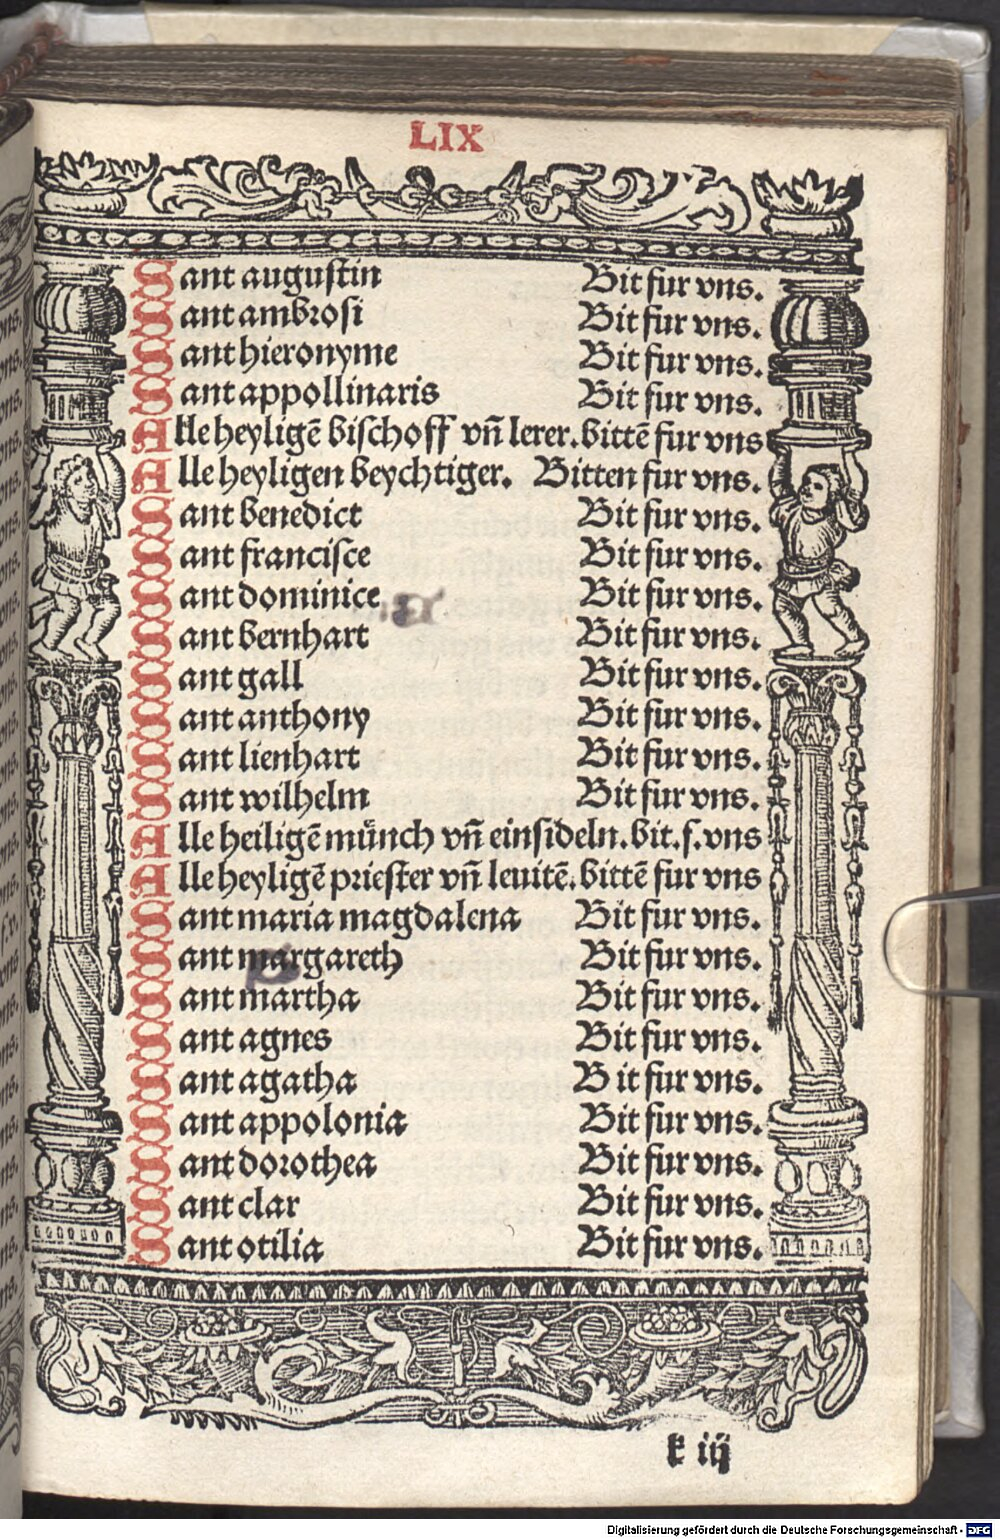 LIX
Sant augustin Bit fur vns.
Sant ambrosi Bit fur vns.
Sant hieronyme Bit fur vns.
Sant appollinaris Bit fur vns.
Alle heyligē bischoff vn̄ lerer. bittē fur vns
Alle heyligen beychtiger. Bitten fur vns.
Sant benedict Bit fur vns.
Sant francisce Bit fur vns.
Sant dominice Bit fur vns.
Sant bernhart Bit fur vns.
Sant gall Bit fur vns.
Sant anthony Bit fur vns.
Sant lienhart Bit fur vns.
Sant wilhelm Bit fur vns.
Alle heiligē mu̎nch vn̄ einsideln. bit. f. vns
Alle heyligē priester vn̄ leuitē. bittē fur vns
Sant maria magdalena Bit fur vns.
Sant margareth Bit fur vns.
Sant martha Bit fur vns.
Sant agnes Bit fur vns.
Sant agatha Bit fur vns.
Sant appolonia Bit fur vns.
Sant dorothea Bit fur vns.
Sant clar Bit fur vns.
Sant otilia Bit fur vns.
k iij
Digitalisierung gefördert durch die Deutsche Forschungsgemeinschaft - DFG